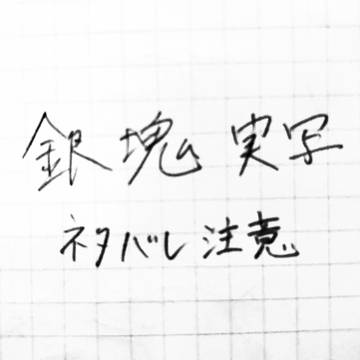 銀塊 実写
ネタバレ注意